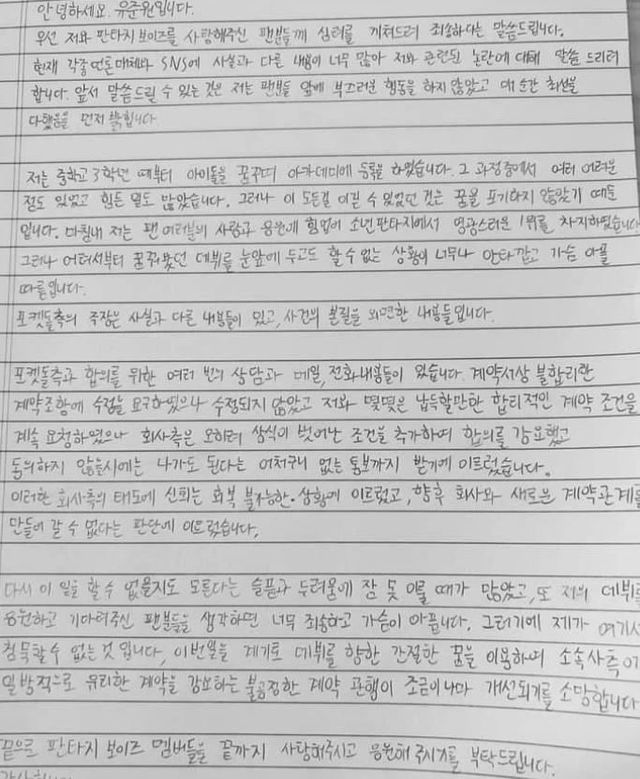 안녕하세요. 유준원입니다.
우선 저와 판타지보이즈를 사랑해주신 팬분들께 심려를 끼쳐드려 죄송하다는 말씀드립니다.
현재 각종 언론매체와 SNS에 사실과 다른 내용이 너무 많아 저와 관련된 논란에 대해 말씀 드리려
합니다. 앞서 말씀드릴 수 있는것은 저는 팬분들 앞에 부끄러운 행동을 하지 않았고 매 순간 최선을
다했음을 먼저 밝힙니다
저는 중학교 3학년 때부터 아이돌을 꿈꾸며 아카데미에 등록을 하였습니다. 그 과정중에서 여러 어려운
점도 있었고 힘든 일도 많았습니다. 그러나 이 모든걸 이길 수 있었던 것은 꿈을 포기하지 않았기 때문
입니다. 마침내 저는 팬 여러분의 사랑과 응원에 힘입어 소년판타지에서 영광스러운 1위를 차지하였습니다
그러나 어려서부터 꿈꿔왔던 데뷔를 눈앞에 두고도 할 수 없는 상황이 너무나 안타깝고 가슴 아플
따름입니다.
포켓돌측의 주장은 사실과 다른 내용들이 있고, 사건의 본질을 외면한 내용들입니다.
포켓돌측과 합의를 위한 여러 번의 상담과 메일, 전화내용들이 있습니다. 계약서상 불합리한
계약조항에 수정을 요구하였으나 수정되지 않았고 저와 몇몇은 납득할만한 합리적인 계약 조건을
계속 요청하였으나 회사측은 오히려 상식이 벗어난 조건을 추가하여 합의를 강요했고
동의하지 않을시에는 나가도 된다는 어처구니 없는 통보까지 받기에 이르렀습니다.
이러한 회사측의 태도에 신뢰는 회복 불가능한 상황에 이르렀고, 향후 회사와 새로운 계약관계를
만들어 갈 수 없다는 판단에 이르렀습니다.
다시 이 일을 할 수 없을지도 모른다는 슬픔과 두려움에 잠 못 이룰 때가 많았고, 또 저의 데뷔를
응원하고 기다려주신 팬분들을 생각하면 너무 죄송하고 가슴이 아픕니다. 그러기에 제가 여기서
침묵할 수 없는 것 입니다, 이번일을 계기로 데뷔를 향한 간절한 꿈을 이용하여 소속사측이
일방적으로 유리한 계약을 강요하는 불공정한 계약 관행이 조금이나마 개선되기를 소망합니다
끝으로 판타지 보이즈 멤버들을 끝까지 사랑해주시고 응원해 주시기를 부탁드립니다.